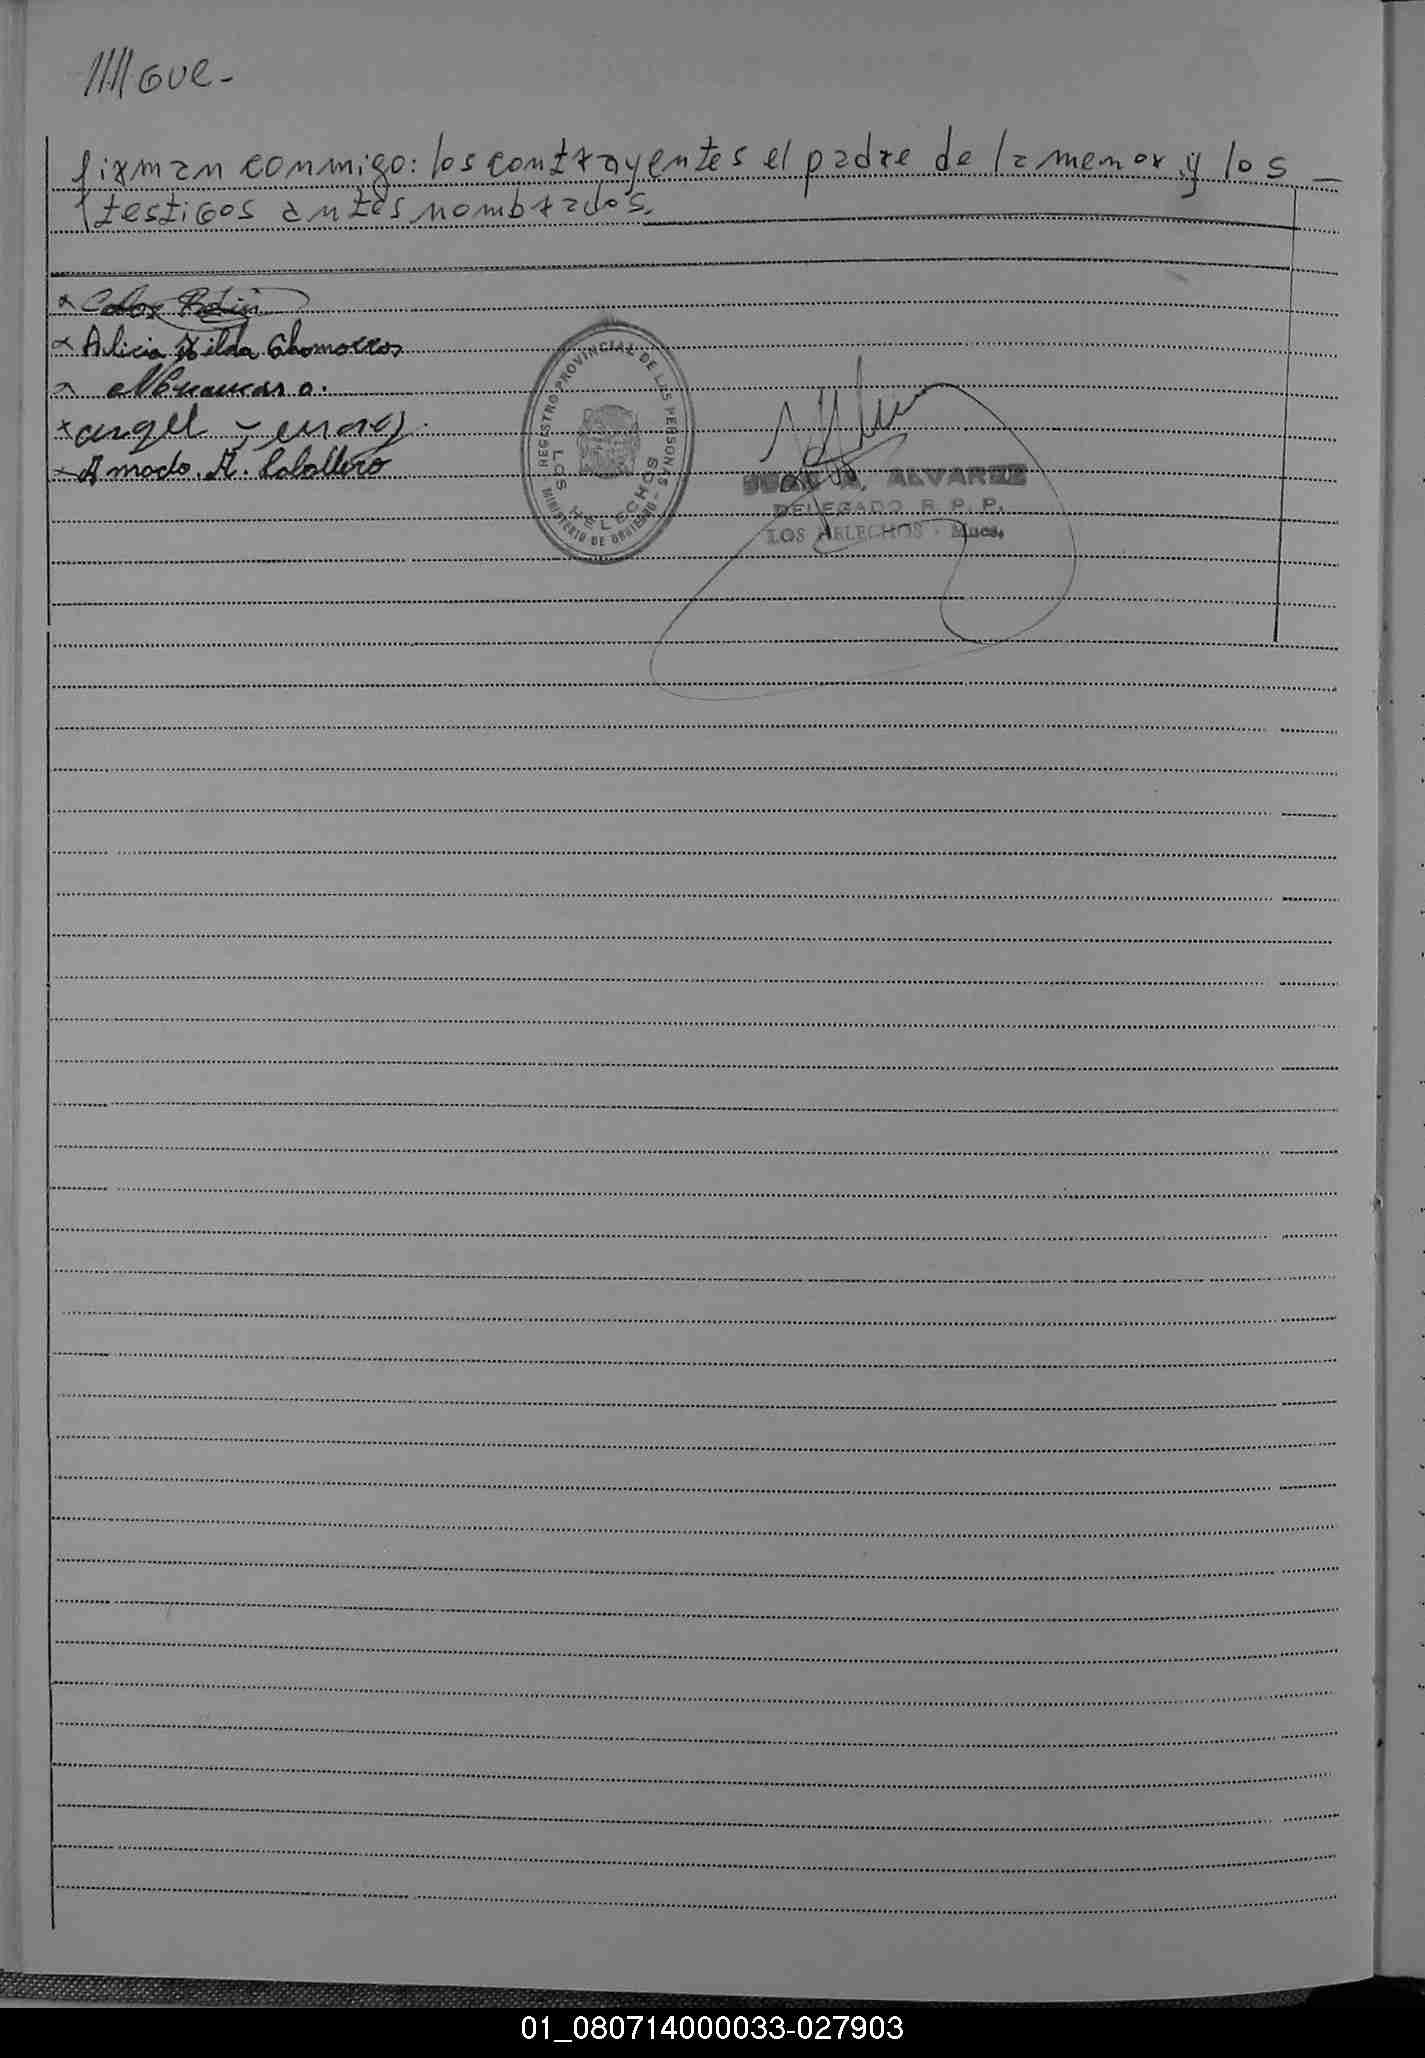 ////Gue-
firman conmigo: los contrayentes el padre de la menor y los —
testigos antes nombrados.
x Alicia Hilda Chamorros
x angel
x Amado. A. Caballero
REGISTRO PROVINCIAL DE LAS PERSONAS - MINISTERIO DE GOBIERNO
LOS HELECHOS
JUAN A. ALVAREZ
DELEGADO R. P. P.
LOS HELECHOS - Mnes.
01_080714000033-027903